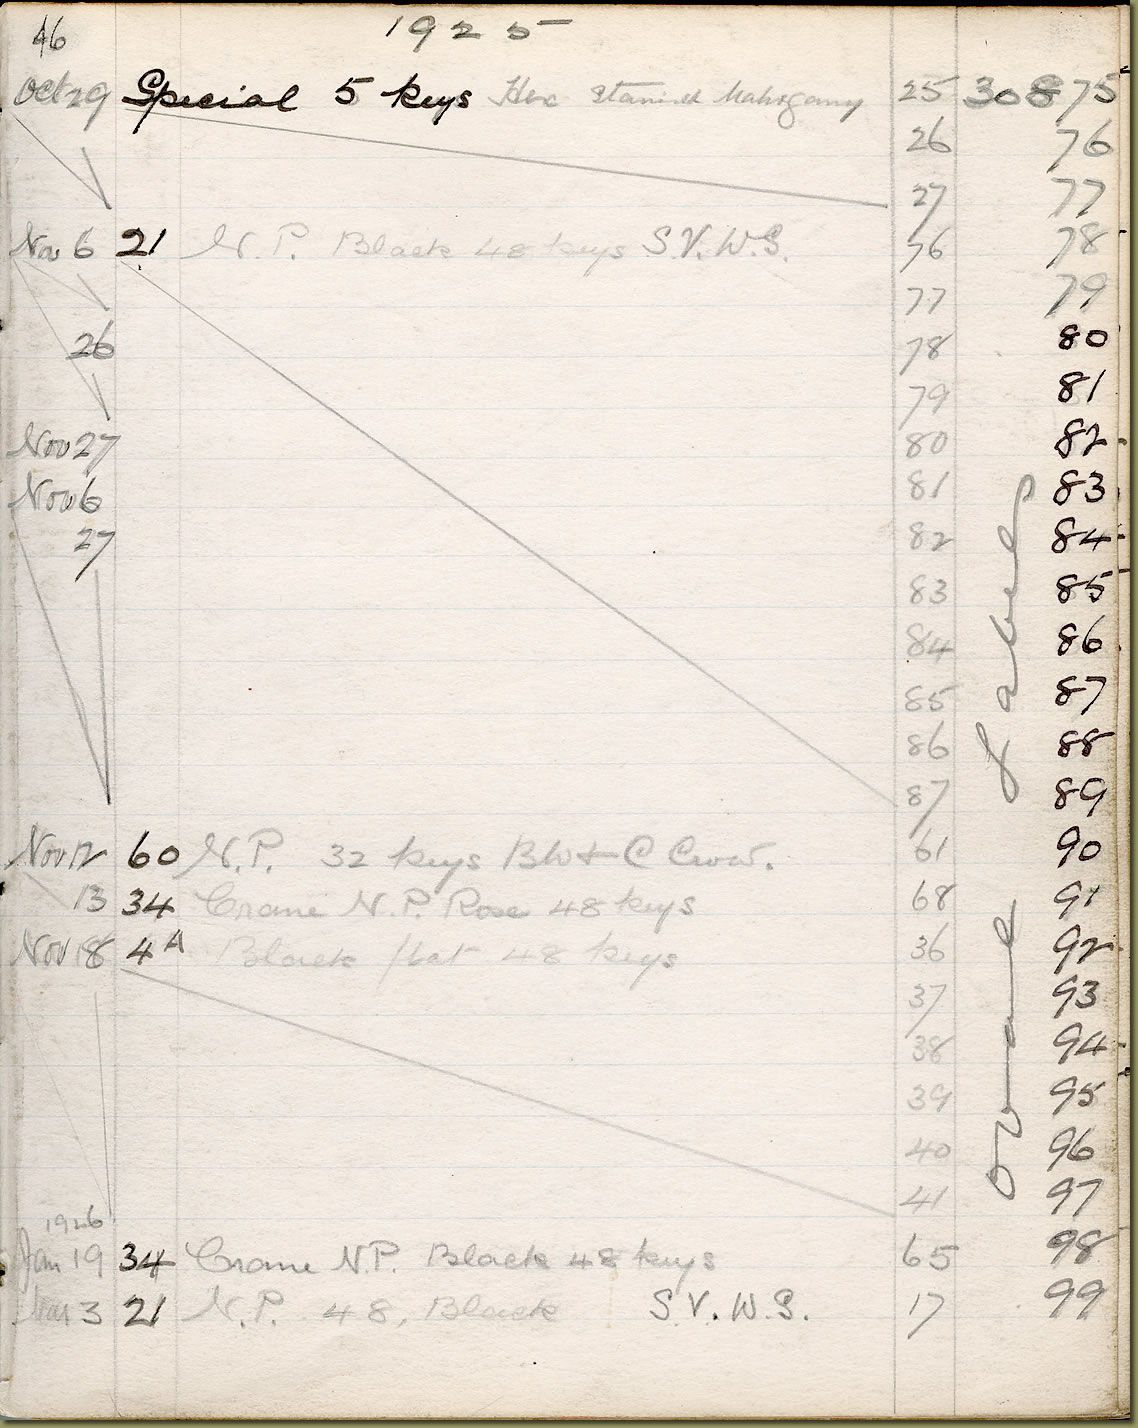 46 1925
Oct 29 Special 5 keys Hex Stained Mahogany 25 30875
26 76
27 77
Nov 6 21 N.P. Black 48 keys S.V.W.S. 76 78
77 79
26 78 80
79 81
Nov 27 80 82
Nov 6 81 83
27 82 84
83 85
84 86
85 87
86 88
87 89
Nov 12 60 N.P. 32 keys 61 90
13 34 Crane N.P. Rose 48 keys 68 91
Nov 18 4A Black flat 48 keys 36 92
37 93
38 94
39 95
40 96
41 97
1926
Jan 19 34 Crane N.P. Black 48 keys 65 98
3 21 N.P. 48, Black S.V.W.S. 17 99
Oval Labels